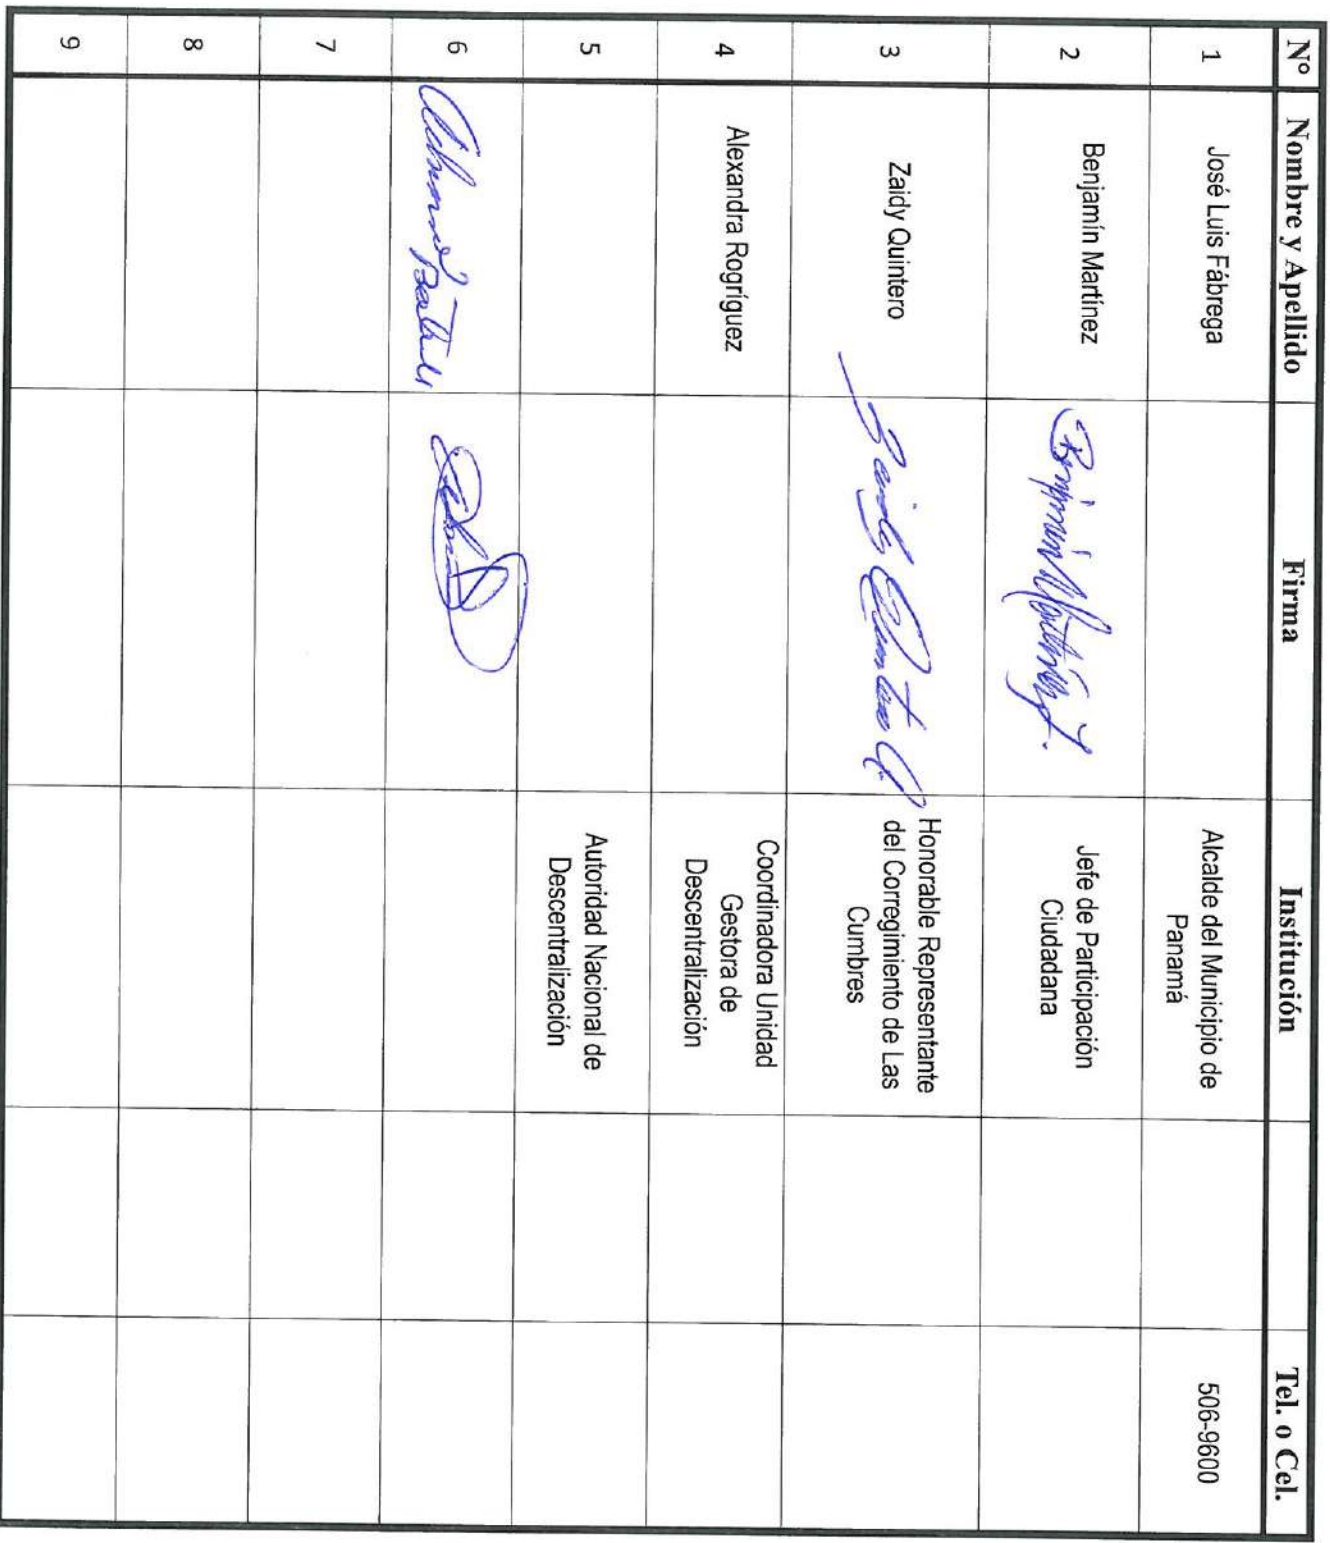 Nº Nombre y Apellido Firma Institución Tel. o Cel.
1 José Luis Fábrega Alcalde del Municipio de
Panamá 506-9600
2 Benjamín Martínez Benjamín Martínez Jefe de Participación
Ciudadana
3 Zaidy Quintero Zaidy Quintero Honorable Representante
del Corregimiento de Las
Cumbres
4 Alexandra Rogríguez Coordinadora Unidad
Gestora de
Descentralización
5 Autoridad Nacional de
Descentralización
6
7
8
9